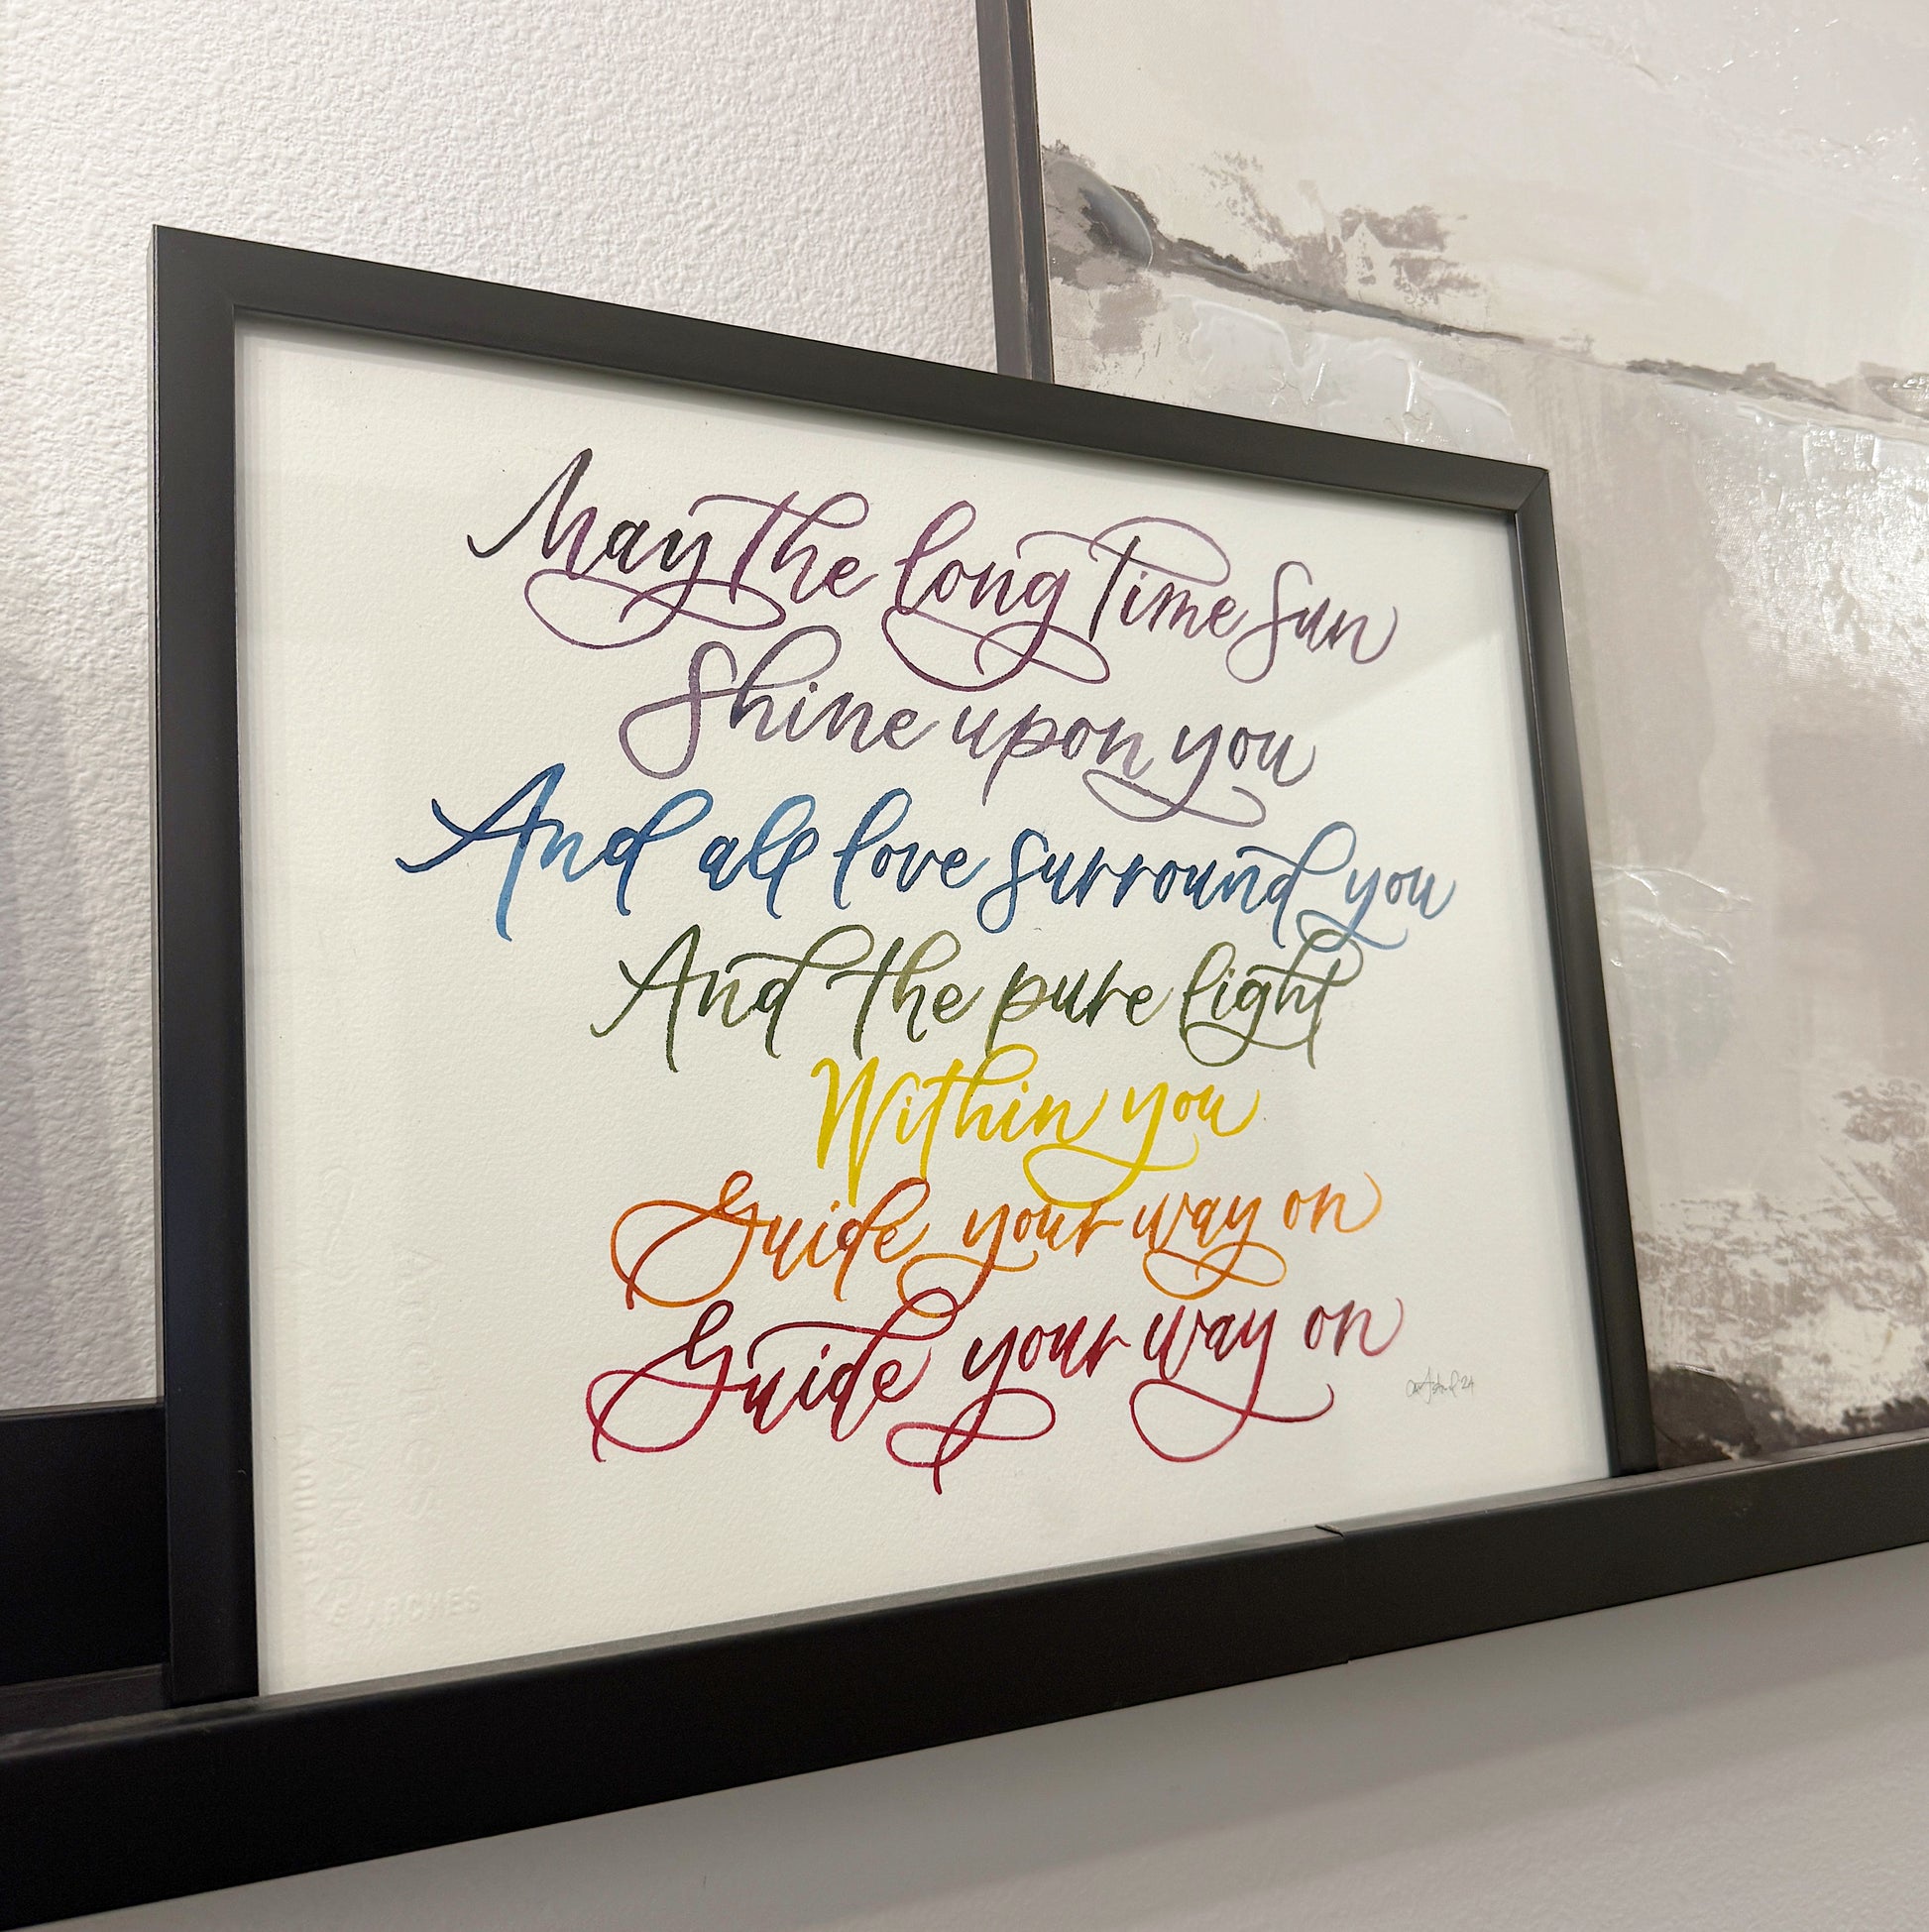 May the long Time Sun
Shine upon you
And all love surround you
And the pure light
Within you
Guide your way on
Guide your way on
ARCHES